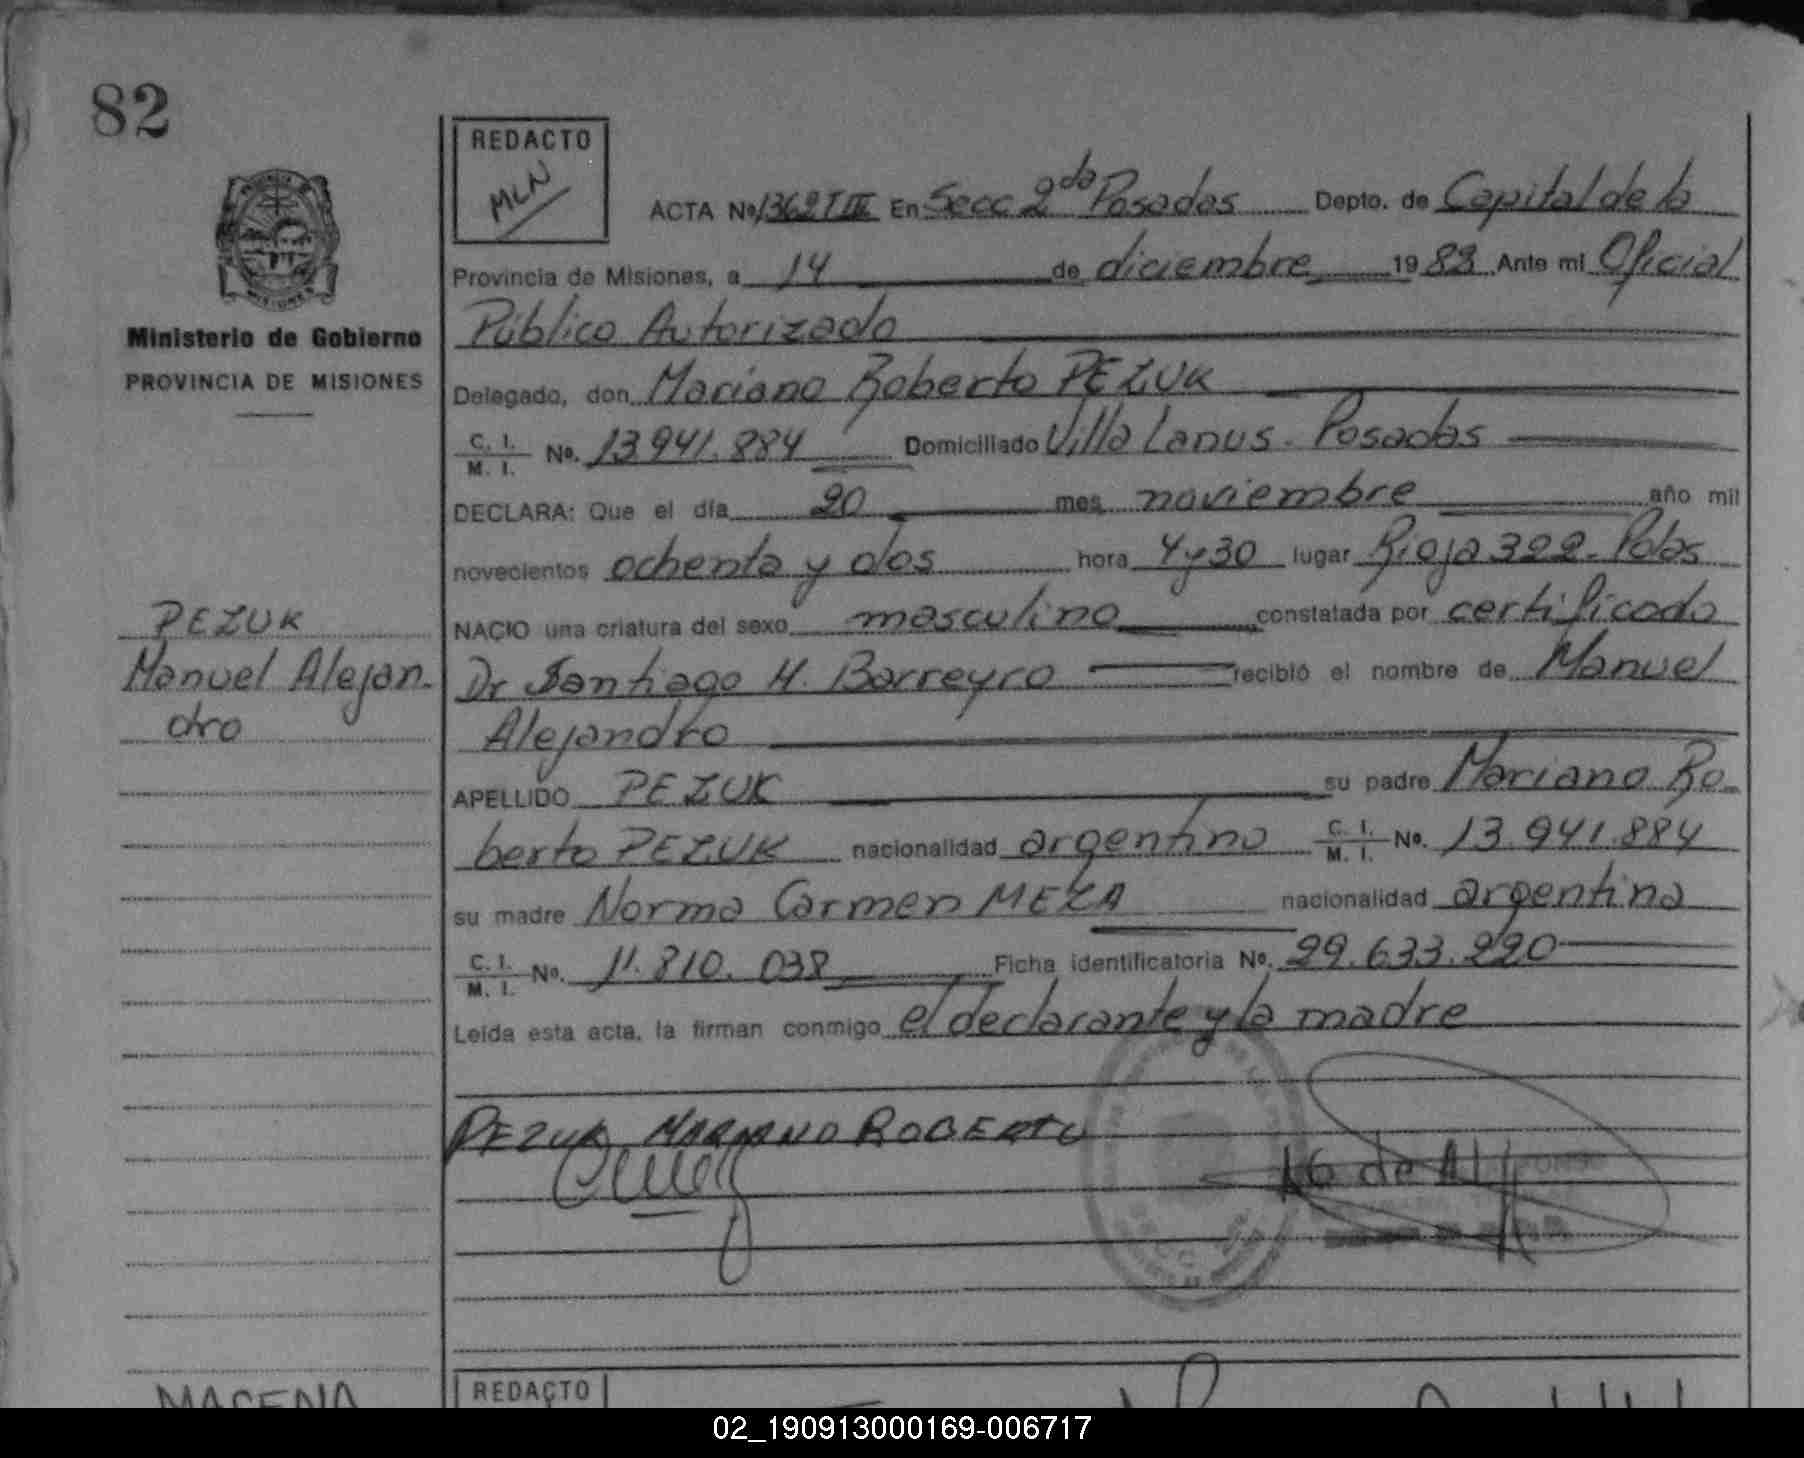 82
REDACTO
MLN
ACTA Nº 1362 T III En Secc 2da Posadas Depto. de Capital de la
Provincia de Misiones, a 14 de diciembre 1982 Ante mi Oficial
Ministerio de Gobierno
PROVINCIA DE MISIONES
Público Autorizado
Delegado, don Mariano Roberto PEZUK
C. I. M. I. Nº. 13.941.884 Domiciliado Villa Lanus - Posadas
DECLARA: Que el día 20 mes noviembre año mil
novecientos ochenta y dos hora 4 y 30 lugar Rioja 322 - Pdas
PEZUK
Manuel Alejan-
dro
NACIO una criatura del sexo masculino constatada por certificado
Dr Santiago H. Barreyro recibió el nombre de Manuel
Alejandro
APELLIDO PEZUK su padre Mariano Ro-
berto PEZUK nacionalidad argentino C. I. M. I. Nº. 13.941.884
su madre Norma Carmen MEZA nacionalidad argentina
C. I. M. I. Nº. 11.810.038 Ficha identificatoria Nº. 29.633.220
Leída esta acta, la firman conmigo el declarante y la madre
PEZUK MARIANO ROBERTO
REDACTO
MACENA
02_190913000169-006717